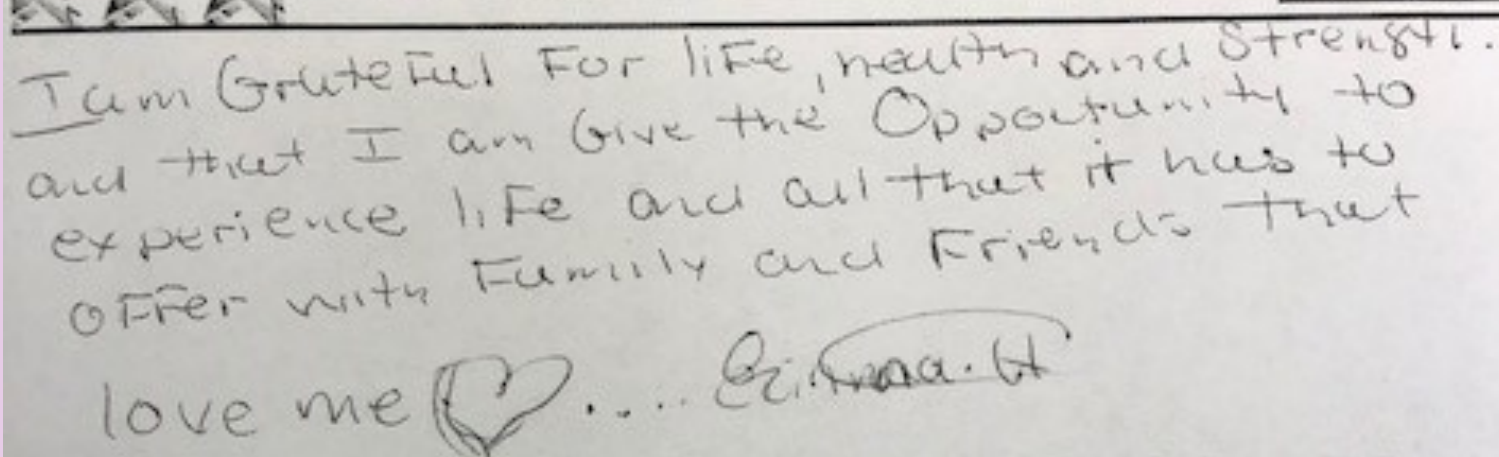 I am Grateful For life, health and Strength.
and that I am Give the Opportunity to
experience life and all that it has to
offer with Family and Friends that
love me ....